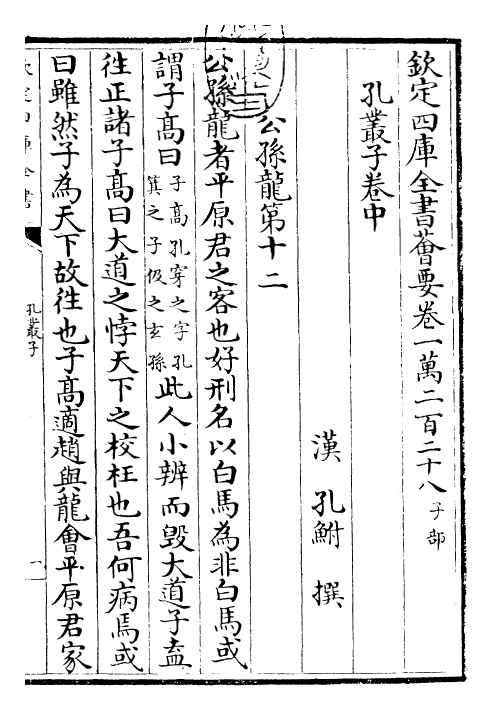 欽定四庫全書薈要卷一萬二百二十八 子部
孔叢子卷中
漢 孔鮒 撰
公孫龍第十二
公孫龍者平原君之客也好刑名以白馬為非白馬或
謂子髙曰子髙孔穿之字孔箕之子伋之玄孫此人小辨而毁大道子盍
往正諸子髙曰大道之悖天下之校枉也吾何病焉或
曰雖然子為天下故往也子髙適趙與龍會平原君家
欽定四庫全書
孔叢子
一